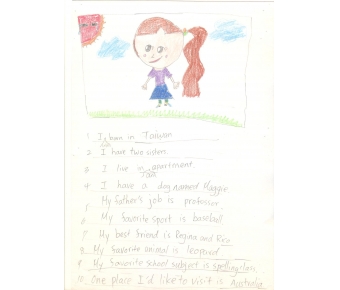 1 Is born in Taiwan
2. I have two sisters.
3 I live in apartment.
4 I have a dog named Maggie
5 My father's job is professor.
6 My favorite sport is baseball
7 My best friend is Regina and Rico
8 My favorite animal is leopard
9 My favourite school subject is spelling
10 One place I'd like to visit is Australia